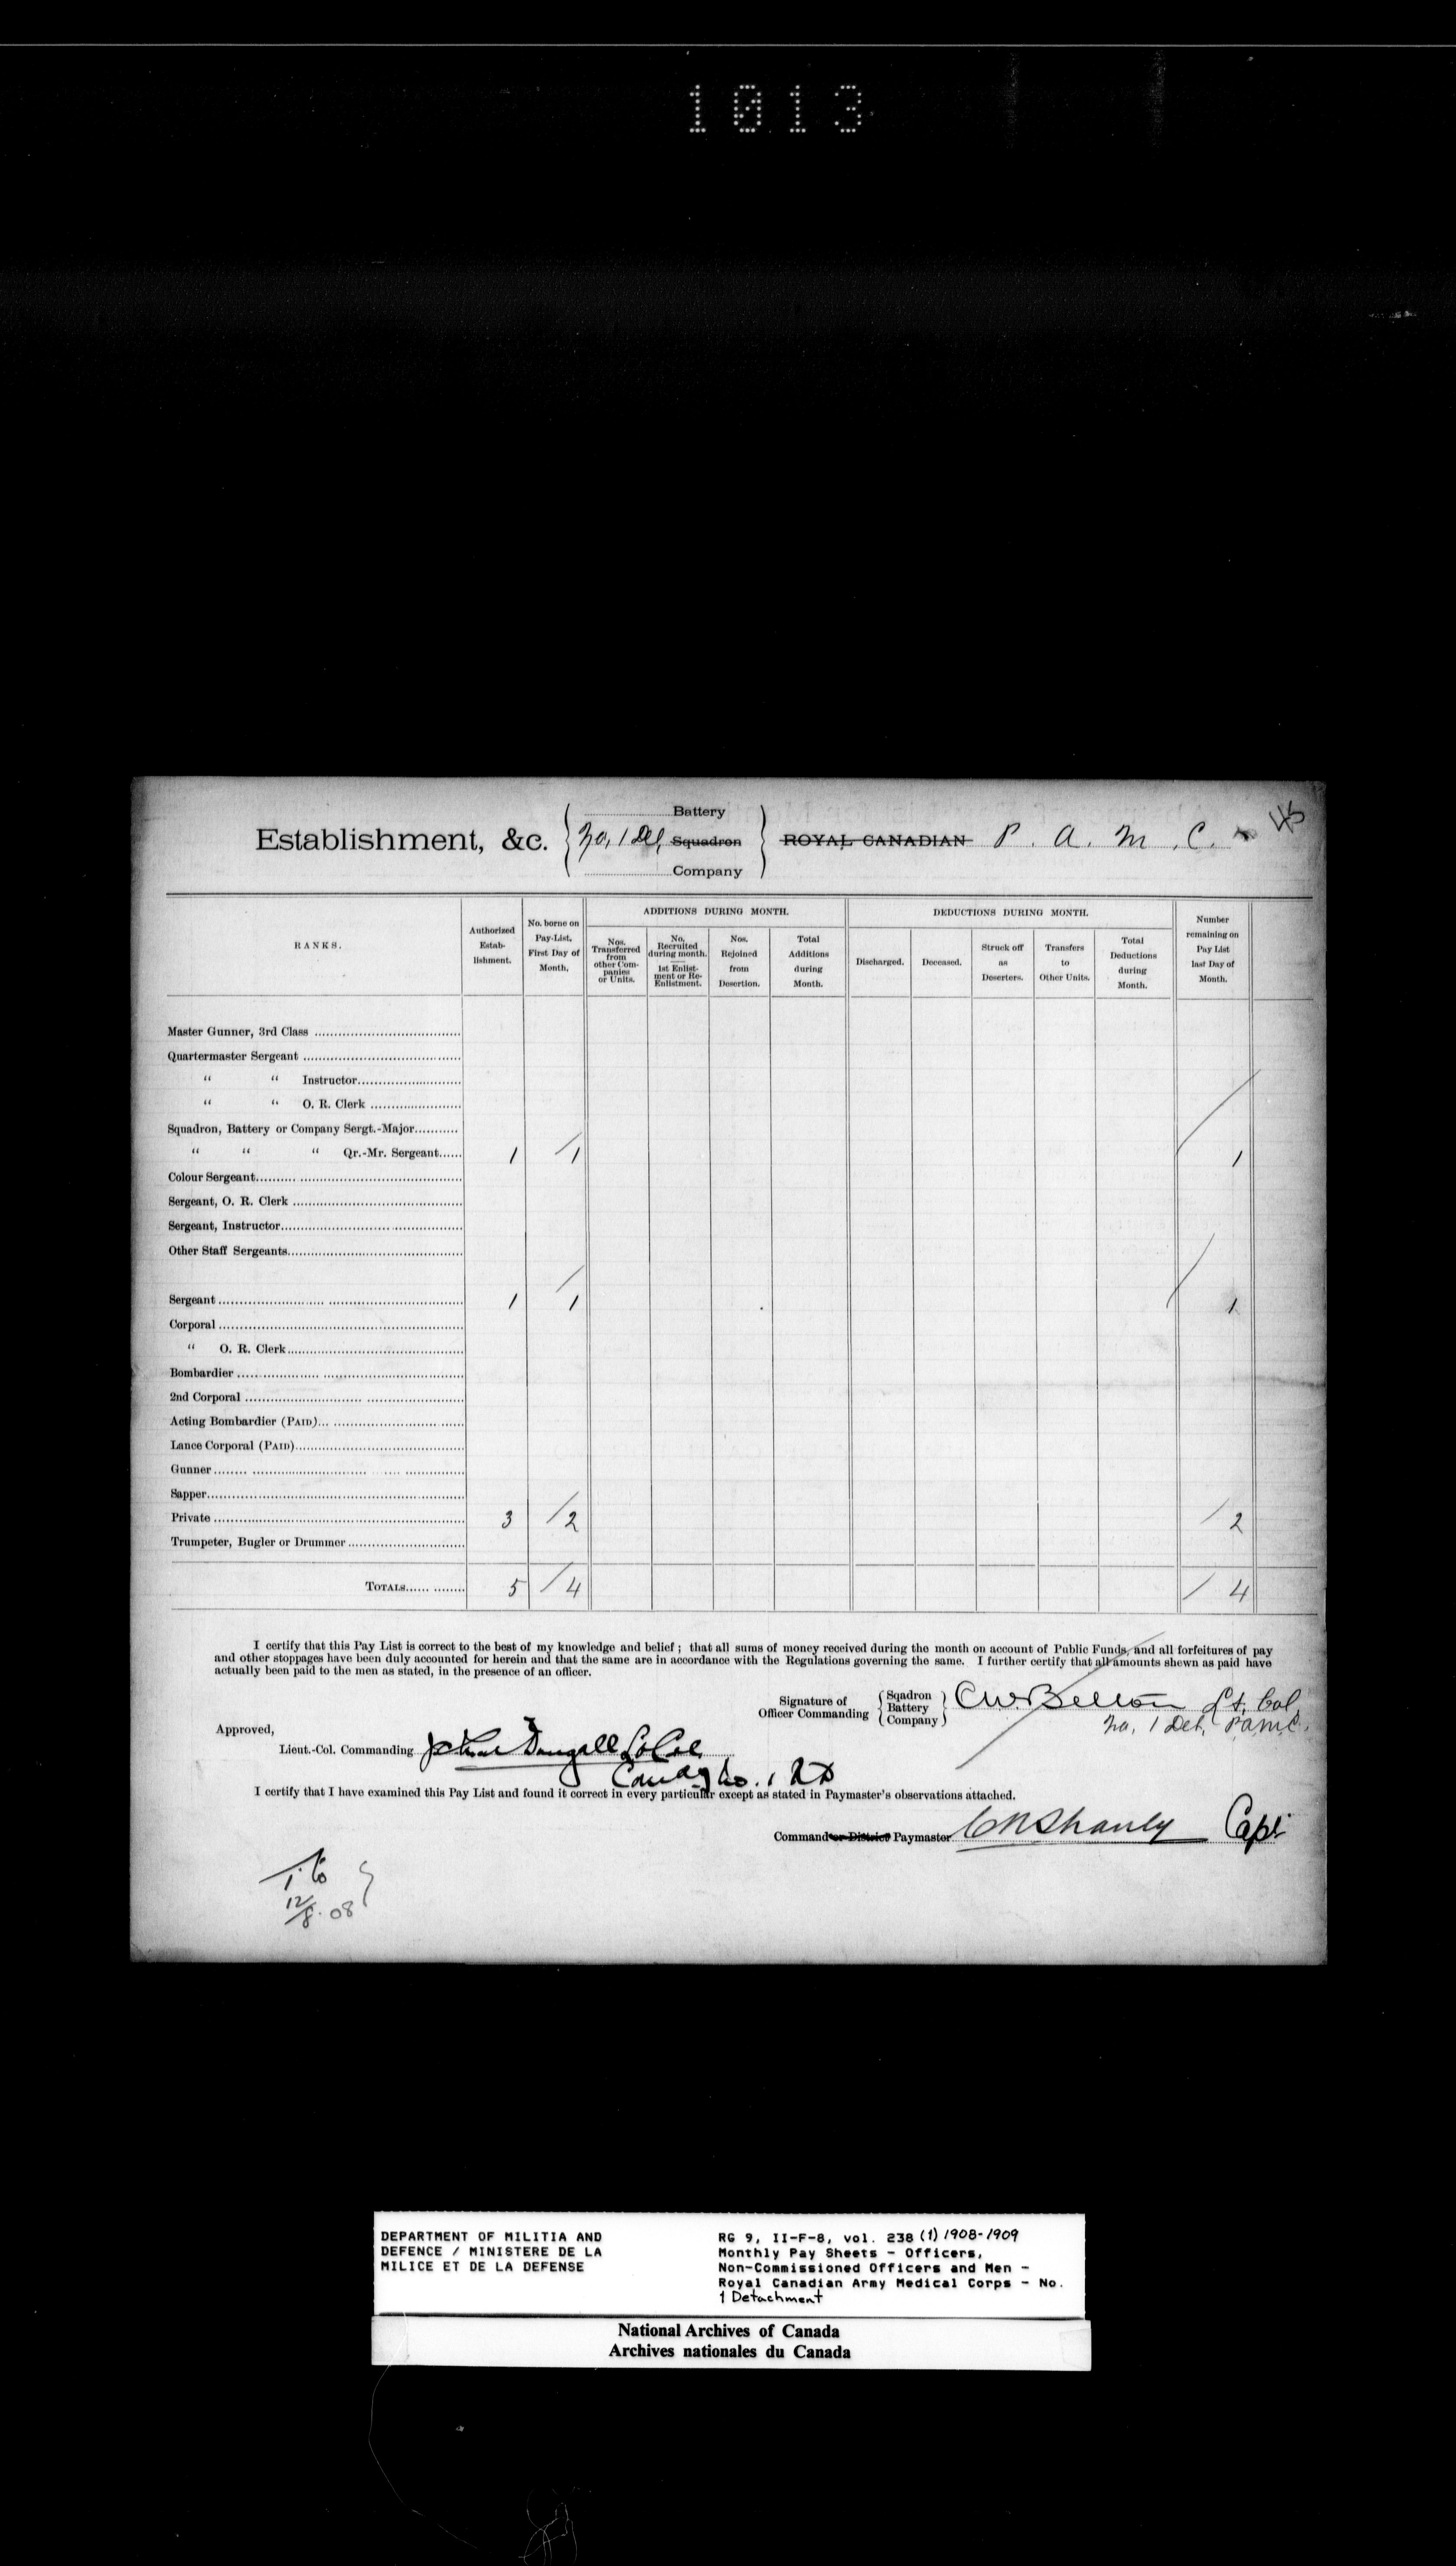 1013
Battery
Establishment, &c. No, 1 Det, Squadron ROYAL CANADIAN P. A. M. C.
Company
RANKS.
Authorized Estab- lishment.
No. borne on Pay-List, First Day of Month.
ADDITIONS DURING MONTH.
Nos. Transferred from other Com- panies or Units.
No. Recruited during month. 1st Enlist- ment or Re- Enlistment.
Nos. Rejoined from Desertion.
Total Additions during Month.
DEDUCTIONS DURING MONTH.
Discharged.
Deceased.
Struck off as Deserters.
Transfers to Other Units.
Total Deductions during Month.
Number remaining on Pay List last Day of Month.
Master Gunner, 3rd Class
Quartermaster Sergeant
" " Instructor
" " O. R. Clerk
Squadron, Battery or Company Sergt.-Major
" " " Qr.-Mr. Sergeant 1 1 1
Colour Sergeant
Sergeant, O. R. Clerk
Sergeant, Instructor
Other Staff Sergeants
Sergeant 1 1 1
Corporal
" O. R. Clerk
Bombardier
2nd Corporal
Acting Bombardier (PAID)
Lance Corporal (PAID)
Gunner
Sapper
Private 3 2 2
Trumpeter, Bugler or Drummer
TOTALS 5 4 4
I certify that this Pay List is correct to the best of my knowledge and belief; that all sums of money received during the month on account of Public Funds, and all forfeitures of pay
and other stoppages have been duly accounted for herein and that the same are in accordance with the Regulations governing the same. I further certify that all amounts shewn as paid have
actually been paid to the men as stated, in the presence of an officer.
Signature of Officer Commanding Sqadron Battery Company CW Belton Lt. Col
No, 1 Det, PAMC.
Approved,
Lieut.-Col. Commanding Lt Col
I certify that I have examined this Pay List and found it correct in every particular except as stated in Paymaster's observations attached.
Command or District Paymaster CN Shanly Capt
12/8.08
DEPARTMENT OF MILITIA AND
DEFENCE / MINISTERE DE LA
MILICE ET DE LA DEFENSE
RG 9, II-F-8, vol. 238 (1) 1908-1909
Monthly Pay Sheets - Officers,
Non-Commissioned Officers and Men -
Royal Canadian Army Medical Corps - No.
1 Detachment
National Archives of Canada
Archives nationales du Canada